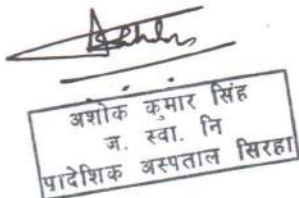 अशोक कुमार सिंह
ज. स्वा. नि
पादेशिक अस्पताल सिरहा